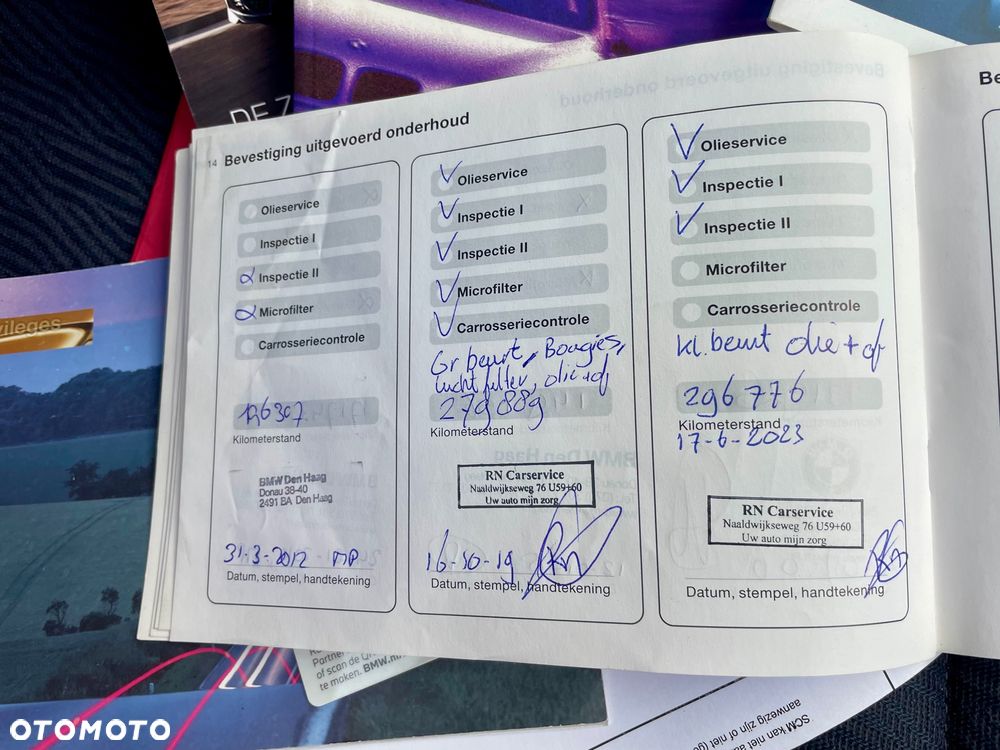 DE Z
14 Bevestiging uitgevoerd onderhoud
Olieservice
Inspectie I
Inspectie II
Microfilter
Carrosseriecontrole
126307
Kilometerstand
BMW Den Haag
Donau 38-40
2491 BA Den Haag
31-3-2012
Datum, stempel, handtekening
Olieservice
Inspectie I
Inspectie II
Microfilter
Carrosseriecontrole
Gr beurt, Bougies,
lucht filter, olie + of
279889
Kilometerstand
RN Carservice
Naaldwijkseweg 76 U59+60
Uw auto mijn zorg
16-10-19
Datum, stempel, handtekening
Olieservice
Inspectie I
Inspectie II
Microfilter
Carrosseriecontrole
kl. beurt olie + of
296776
Kilometerstand
17-6-2023
RN Carservice
Naaldwijkseweg 76 U59+60
Uw auto mijn zorg
Datum, stempel, handtekening
Be
vileges
Partner
of scan de
te maken. BMW.
SCM kan niet
aanwezig zijn of niet
OTOMOTO